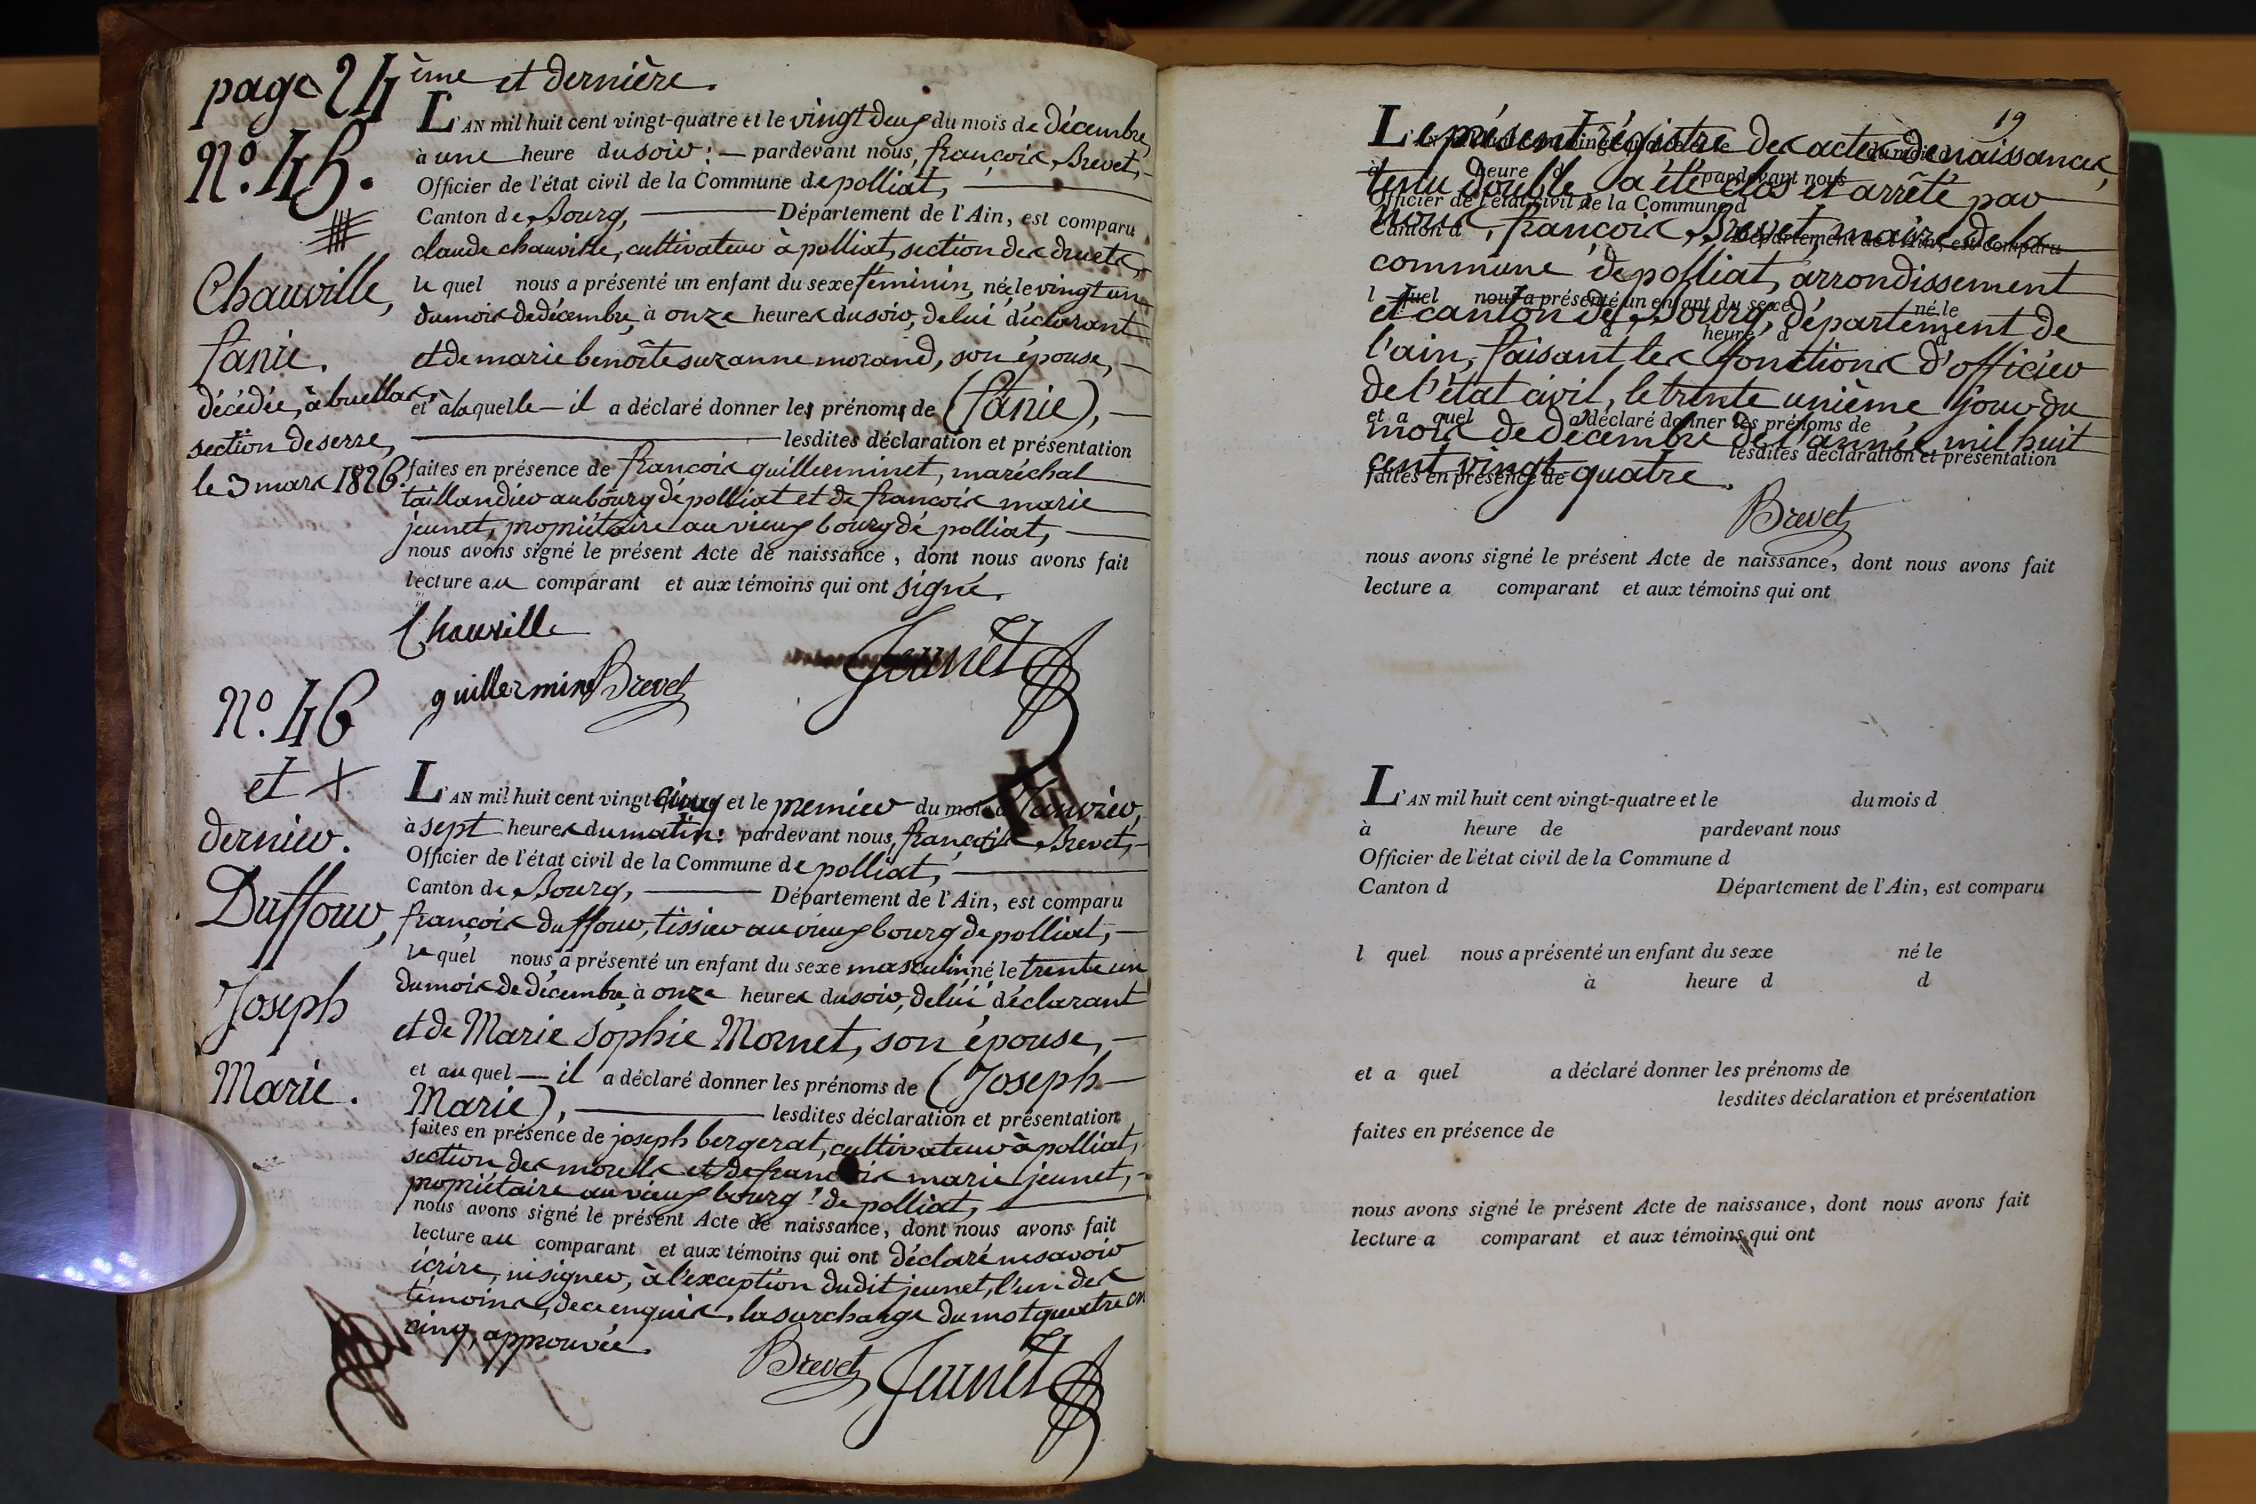 page 24ème et dernière.
N.º 45.
Chauville,
fanie.
décédée, à buellas,
section de serre,
le 3 mars 1826.
L'AN mil huit cent vingt-quatre et le vingt deux du mois de décembre,
à une heure du soir : — pardevant nous, françois Brevet,
Officier de l'état civil de la Commune de polliat,
Canton de Bourg, Département de l'Ain, est comparu
claude chauville, cultivateur à polliat, section des druets,
le quel nous a présenté un enfant du sexe féminin, née, le vingt un
du mois de décembre, à onze heures du soir, de lui déclarant
et de marie benoîte suzanne morand, son épouse,
et à laquelle — il a déclaré donner les prénoms de (fanie),
lesdites déclaration et présentation
faites en présence de françois guillerminet, maréchal
taillandier au bourg de polliat et de françois marie
jeunet, propriétaire au vieux bourg de polliat,
nous avons signé le présent Acte de naissance, dont nous avons fait
lecture au comparant et aux témoins qui ont signé.
Chauville
guillerminet Brevet
Jeunet
N.º 46
et
dernier.
Duffour,
Joseph
Marie.
L'AN mil huit cent vingt cinq et le premier du mois de Janvier,
à sept heures du matin : pardevant nous, françois Brevet,
Officier de l'état civil de la Commune de polliat,
Canton de Bourg, Département de l'Ain, est comparu
françois duffour, tissier au vieux bourg de polliat,
le quel nous a présenté un enfant du sexe masculin né le trente un
du mois de décembre, à onze heures du soir, de lui déclarant
et de Marie Sophie Mornet, son épouse,
et au quel — il a déclaré donner les prénoms de (Joseph
Marie), lesdites déclaration et présentation
faites en présence de joseph bergerat, cultivateur à polliat,
section des morells et de françois marie jeunet,
propriétaire au vieux bourg de polliat,
nous avons signé le présent Acte de naissance, dont nous avons fait
lecture au comparant et aux témoins qui ont déclaré ne savoir
écrire, ni signer, à l'exception dudit jeunet, l'un des
témoins, de ce enquis. la surcharge du mot quatre en
cinq, approuvée.
Brevet Jeunet
19
Le présent régistre des actes de naissances,
tenu double, a été clos et arrêté par
nous, françois Brevet, maire de la
commune de polliat, arrondissement
et canton de Bourg, département de
l'ain, faisant les fonctions d'officier
de l'état civil, le trente unième jour du
mois de décembre de l'année mil huit
cent vingt quatre.
Brevet
L'AN mil huit cent vingt-quatre et le du mois d
à heure d pardevant nous
Officier de l'état civil de la Commune d
Canton d Département de l'Ain, est comparu
l quel nous a présenté un enfant du sexe né le
à heure d d
et a quel a déclaré donner les prénoms de
lesdites déclaration et présentation
faites en présence de
nous avons signé le présent Acte de naissance, dont nous avons fait
lecture a comparant et aux témoins qui ont
L'AN mil huit cent vingt-quatre et le du mois d
à heure de pardevant nous
Officier de l'état civil de la Commune d
Canton d Département de l'Ain, est comparu
l quel nous a présenté un enfant du sexe né le
à heure d d
et a quel a déclaré donner les prénoms de
lesdites déclaration et présentation
faites en présence de
nous avons signé le présent Acte de naissance, dont nous avons fait
lecture a comparant et aux témoins qui ont